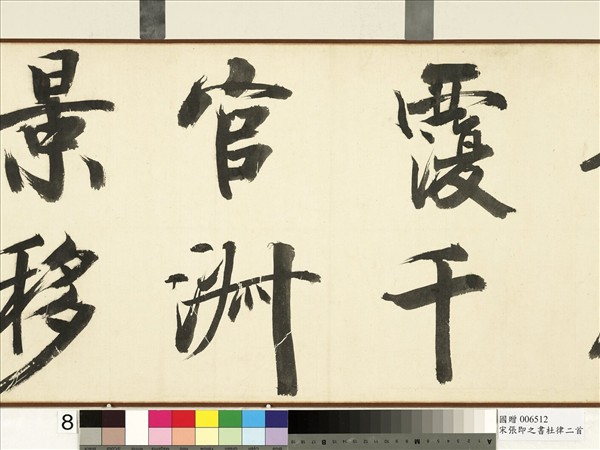 覆千
官淑
景移
8
國贈 006512
宋張即之書杜律二首